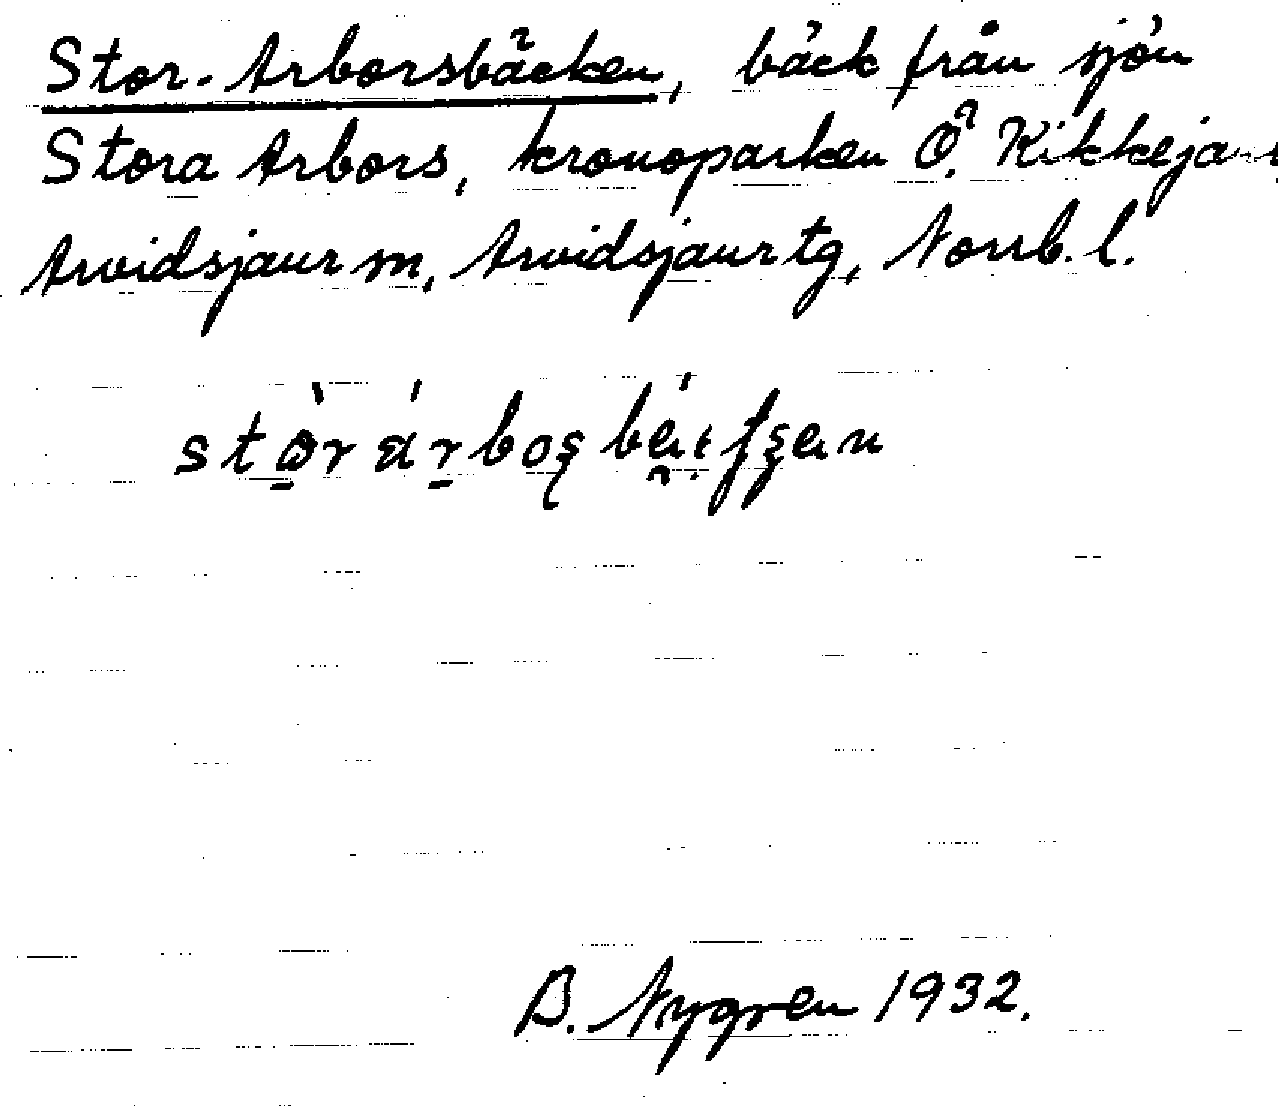 Stor-Arborsbäcken, bäck från sjön
Stora Arbors, kronoparken Ö. Kikkejaur,
Arvidsjaur sn, Arvidsjaur tg, Norrb. l.
B. Nygren 1932.